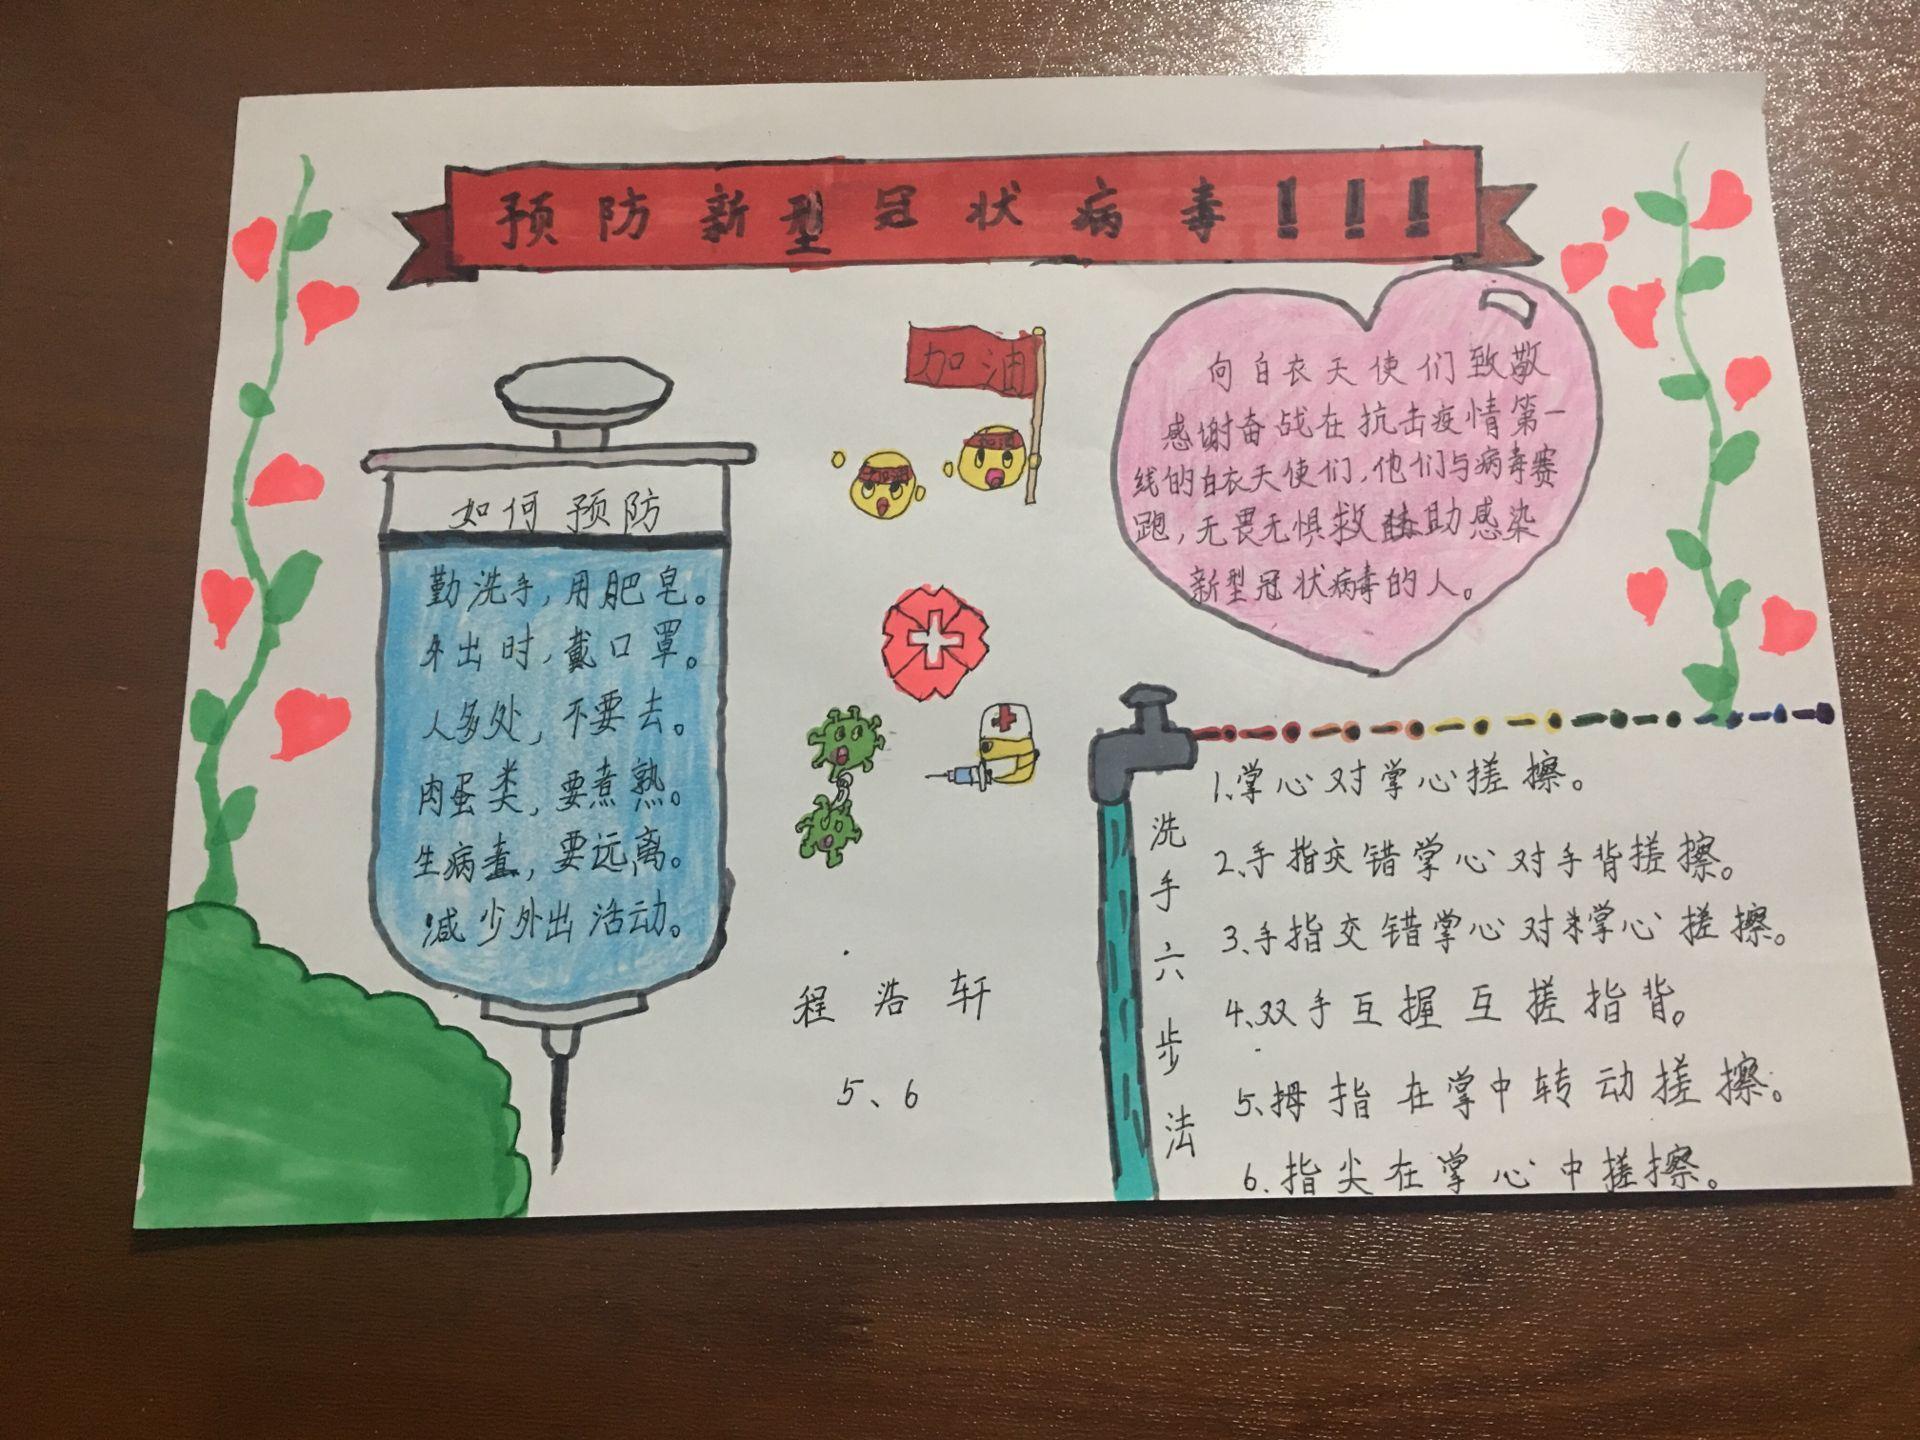 预防新型冠状病毒!!!
加油
加油
如何预防
勤洗手,用肥皂。
外出时,戴口罩。
人多处,不要去。
肉蛋类,要煮熟。
生病者,要远离。
减少外出活动。
向白衣天使们致敬
感谢奋战在抗击疫情第一
线的白衣天使们,他们与病毒赛
跑,无畏无惧救助感染
新型冠状病毒的人。
程浩轩
5、6
洗手六步法
1、掌心对掌心搓擦。
2、手指交错掌心对手背搓擦。
3、手指交错掌心对掌心搓擦。
4、双手互握互搓指背。
5、拇指在掌中转动搓擦。
6、指尖在掌心中搓擦。